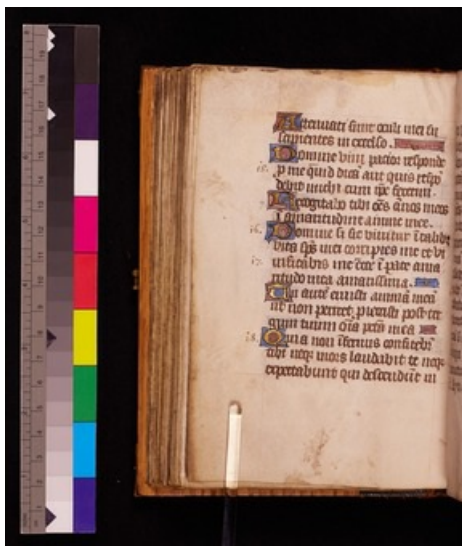 Attenuati sunt oculi mei su
spicientes in excelso.
Domine vim patior responde
p me quid dicā aut quis respō
debit michi cum ipē fecerim.
Recogitabo tibi oēs ānos meos
ī amaritudine anime mee.
16. Domine si sic vivitur ī talibi
vita sps mei corripies me et vi
17. vificabis me ecce ī pace ama
ritudo mea amarissima.
Tu autē eruisti animā meā
ut non periret, proiecisti post ter
gum tuum oīa pctā mea
18. Quia non īfernus confitebit
tibi neqz mors laudabit te neqz
expectabunt qui descendūt in